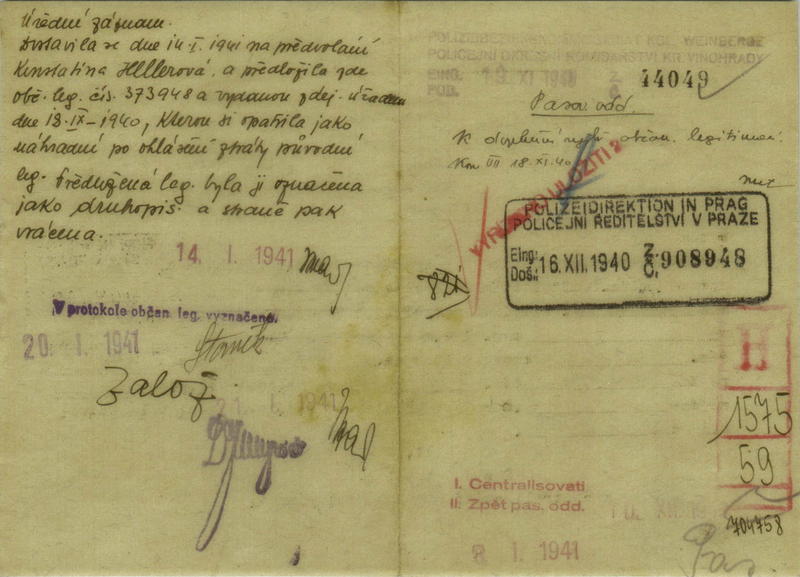 Úřední záznam.
Dostavila se dne 14.I. 1941 na předvolání
Konstatina Hellerová, a předložila zde
obč. leg. čís. 373948 a vydanou zdej. úřadem
dne 18.IX-1940, kterou si opatřila jako
náhradní po ohlášení ztráty původní
leg. Předložená leg. byla jí označena
jako druhopis a straně pak
vrácena.
14. I. 1941
V protokole občan. leg. vyznačeno.
20. I. 1941
Založ
21. I. 1941
POLIZEI KGL. WEINBERGE
POLICEJNÍ KOMISAŘSTVÍ KR. VINOHRADY
EING. POD. XI 1940 Z Č 44049
Pasov. odd.
občan. legitimac.
18.XI.40
POLIZEIDIREKTION IN PRAG
POLICEJNÍ ŘEDITELSTVÍ V PRAZE
Eing.: Doš.: 16. XII. 1940 Z. Č. 908948
H
1575
59
I. Centralisovati
II. Zpět pas. odd.
704758
8. I. 1941